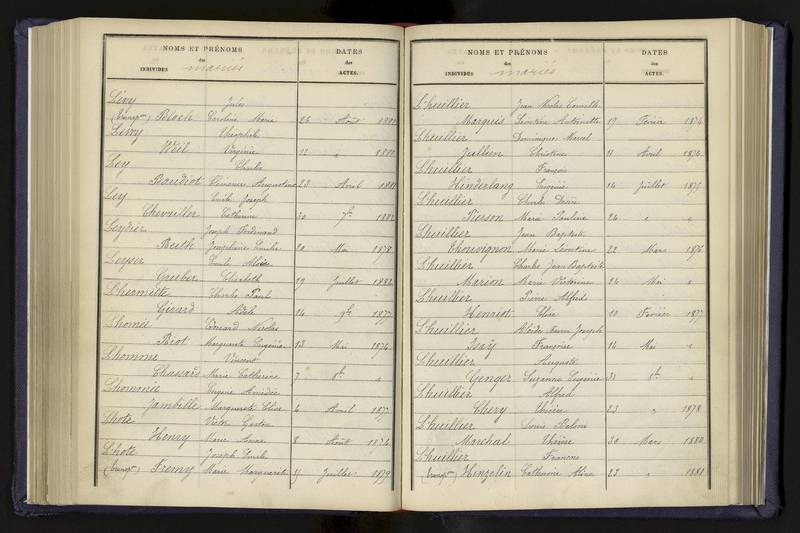 NOMS ET PRÉNOMS
des
INDIVIDUS mariés
DATES
des
ACTES.
Lévy Jules
(transp.on) Bloch Caroline Marie 26 Août 1882
Levvy Théophile
Weil Virginie 12 " 1880
Ley Charles
Baudiot Clémence Augustine 23 Avril 1881
Ley Emile Joseph
Chevallier Catherine 30 7bre 1882
Leydier Joseph Ferdinand
Barth Joséphine Emilie 20 Mai 1878
Leyser Emile Aloïse
Greuber Elisabeth 19 Juillet 1882
Lhermitte Charles Paul
Girard Adèle 14 9bre 1877
Lhomée Edouard Nicolas
Biot Marguerite Eugénie 13 Mai 1876
Lhomme Vincent
Chassard Marie Catherine 7 8bre "
Lhomonié Eugène Amédée
Jambille Marguerite Elise 4 Avril 1877
Lhote Victor Gaston
Henry Marie Anne 8 Août 1876
Lhote Joseph Emile
(transp.on) Fremy Marie Marguerite Juillet 1879
NOMS ET PRÉNOMS
des
INDIVIDUS mariés
DATES
des
ACTES.
Lhuillier Jean Nicolas
Marquis Léontine Antoinette 19 Février 1874
Lhuillier Dominique Marcel
Jullien Christine 11 Avril 1874
Lhuillier François
Hinderlang Eugénie 14 Juillet 1875
Lhuillier Charles Désiré
Pierson Marie Pauline 24 " "
Lhuillier Jean Baptiste
Thouvignon Marie Léontine 22 Mars 1876
Lhuillier Charles Jean Baptiste
Marion Marie Victorine 24 Mai "
Lhuillier Pierre Alfred
Henriot Elise 10 Février 1877
Lhuillier Aloïde Xavier Joseph
Isay Françoise 14 Mai "
Lhuillier Auguste
Genger Suzanne Eugénie 31 8bre "
Lhuillier Alfred
Chéry Thérèse 23 " 1878
Lhuillier Louis
Marchal Thérèse 30 Mars 1880
Lhuillier François
(transp.on) Hinzelin Catherine Aline 23 " 1881